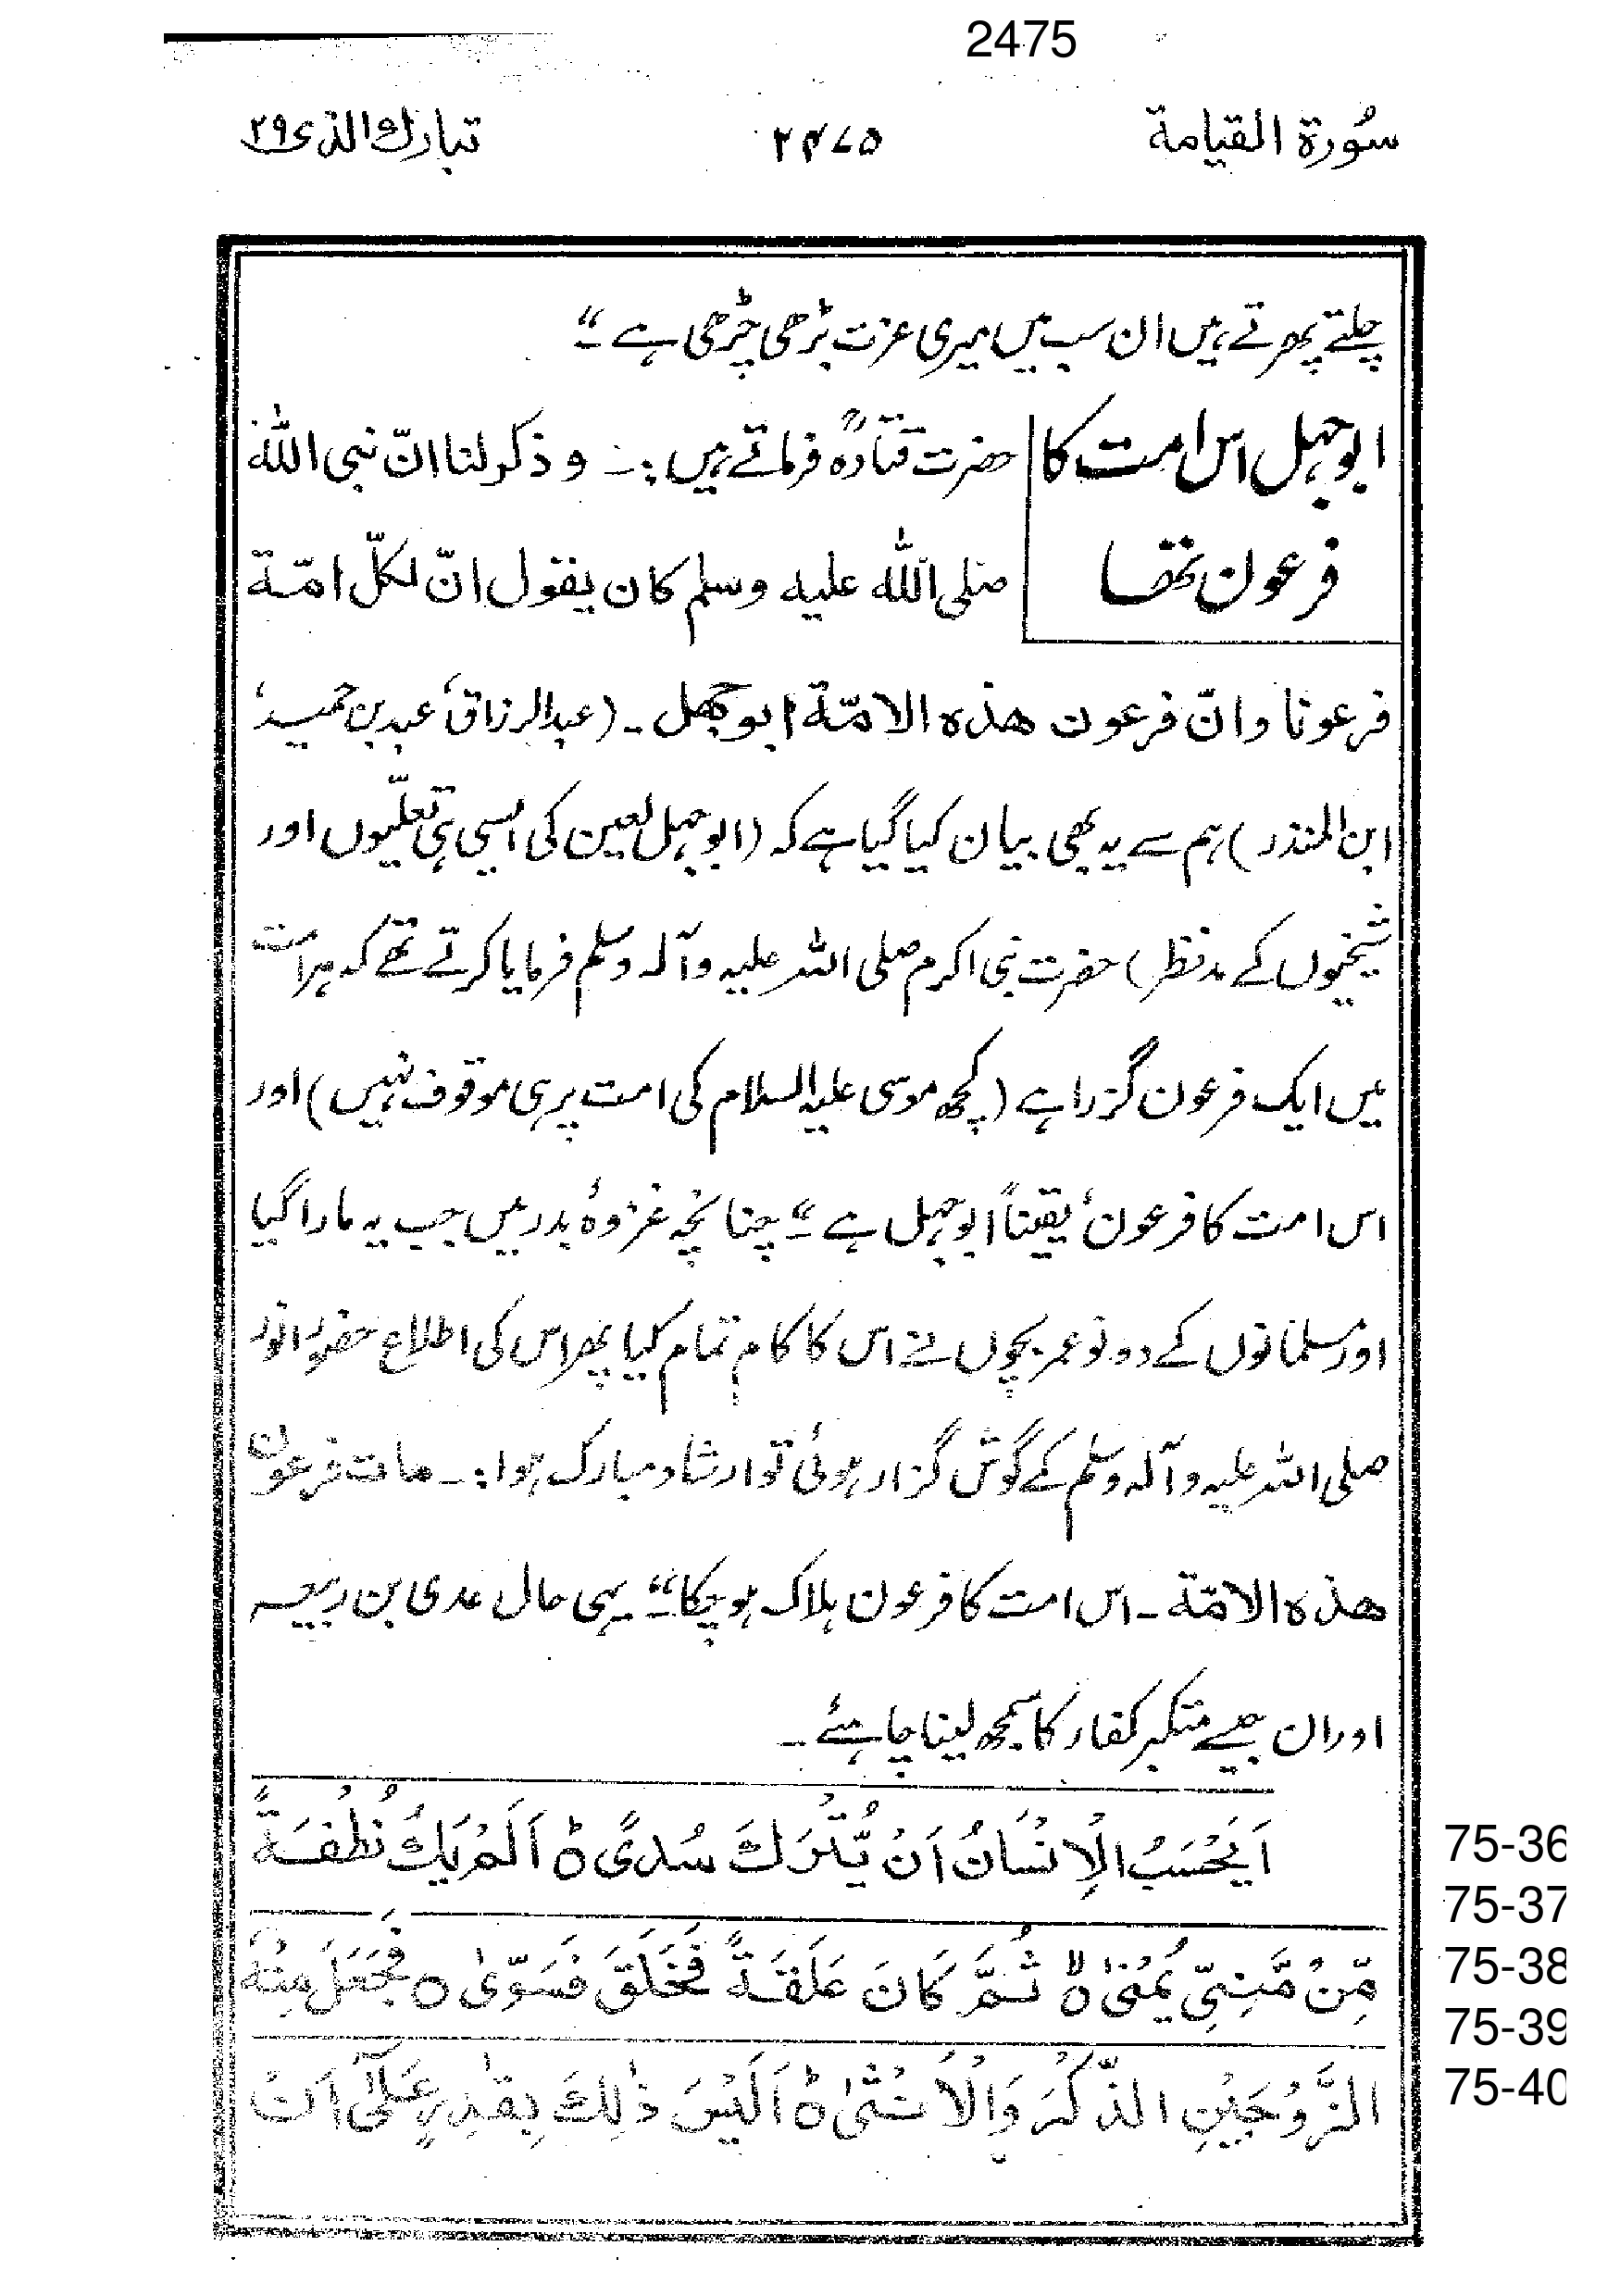 2475
سُورة القیامة ۲۴۷۵ تبارك الذی ۲۹
چلتے پھرتے ہیں ان سب میں میری عزت بڑھی چڑھی ہے ۔“
ابوجہل اس امت کا
فرعون تھا
حضرت قتادہؒ فرماتے ہیں :۔ و ذکر لنا انّ نبی اللہ
صلی اللہ علیہ وسلم کان یقول انّ لکلّ امّة
فرعونا وانّ فرعون ھذہ الامّة ابوجھل ۔ (عبدالرزاق، عبد بن حمید،
ابن المنذر) ہم سے یہ بھی بیان کیا گیا ہے کہ (ابوجہل لعین کی ایسی ہی تعلّیوں اور
شیخیوں کے مدنظر) حضرت نبی اکرم صلی اللہ علیہ وآلہ وسلم فرمایا کرتے تھے کہ ہر امت
میں ایک فرعون گزرا ہے (کچھ موسی علیہ السلام کی امت پر ہی موقوف نہیں) اور
اس امت کا فرعون، یقیناً ابوجہل ہے ۔“ چنانچہ غزوۂ بدر میں جب یہ مارا گیا
اور مسلمانوں کے دو نو عمر بچوں نے اس کا کام تمام کیا پھر اس کی اطلاع حضور انور
صلی اللہ علیہ وآلہ وسلم کے گوش گزار ہوئی تو ارشاد مبارک ہوا :۔ مات فرعون
ھذہ الامّة ۔ اس امت کا فرعون ہلاک ہو چکا ۔“ یہی حال عدی بن ربیعہ
اور ان جیسے متکبر کفار کا سمجھ لینا چاہئے ۔
اَیَحْسَبُ الْاِنْسَانُ اَنْ یُّتْرَكَ سُدًی ۝ اَلَمْ یَكُ نُطْفَةً
مِّنْ مَّنِیٍّ یُّمْنٰی ۝ ثُمَّ كَانَ عَلَقَةً فَخَلَقَ فَسَوّٰی ۝ فَجَعَلَ مِنْهُ
الزَّوْجَیْنِ الذَّكَرَ وَالْاُنْثٰی ۝ اَلَیْسَ ذٰلِكَ بِقٰدِرٍ عَلٰٓی اَنْ
75-36
75-37
75-38
75-39
75-40